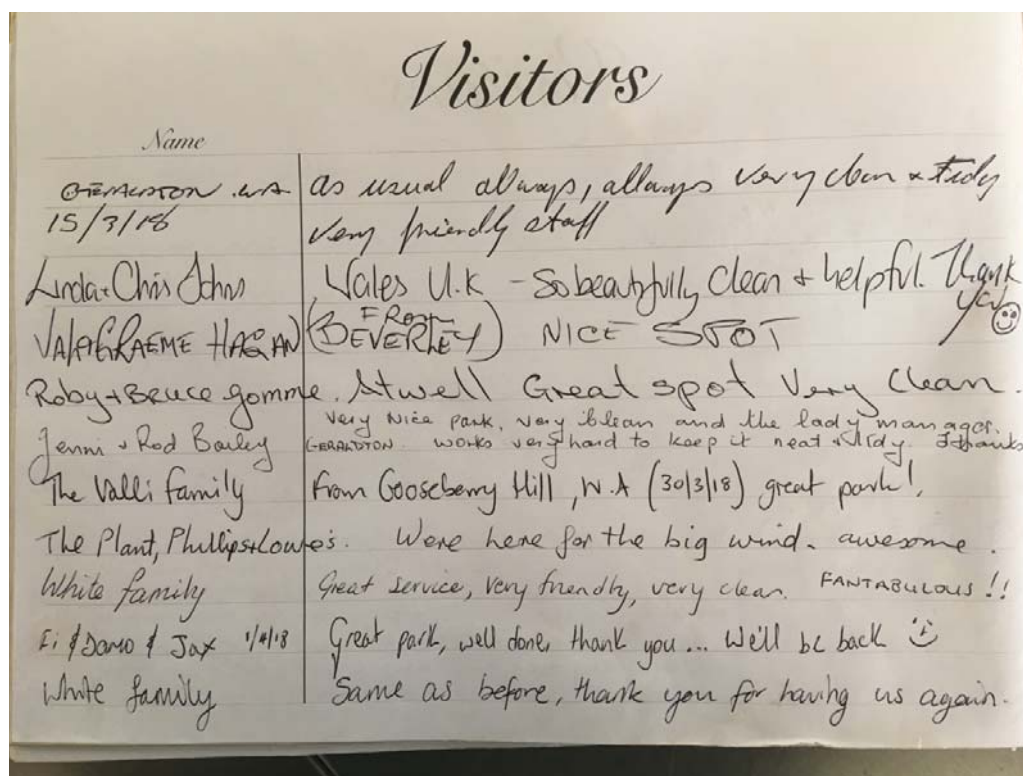 Visitors
Name
GERALDTON .WA. as usual always, allways very clean & tidy
15/3/18 very friendly staff
Linda + Chris Johns Wales U.K - So beautifully clean + helpful. Thank you
VAL & GRAEME HAGAN (FROM BEVERLEY) NICE SPOT
Roby + Bruce gomme. Atwell Great spot Very Clean.
Jenni + Rod Bailey Very Nice park, very clean and the lady manager.
GERALDTON. works very hard to keep it neat & tidy. Thanks
The Valli family From Gooseberry Hill, W.A (30/3/18) great park!,
The Plant, Phillips + Lowe's. Were here for the big wind. awesome.
White family Great service, very friendly, very clean. FANTABULOUS !!
& Damo & Jax 1/4/18 Great park, well done, thank you... We'll be back
White family Same as before, thank you for having us again.